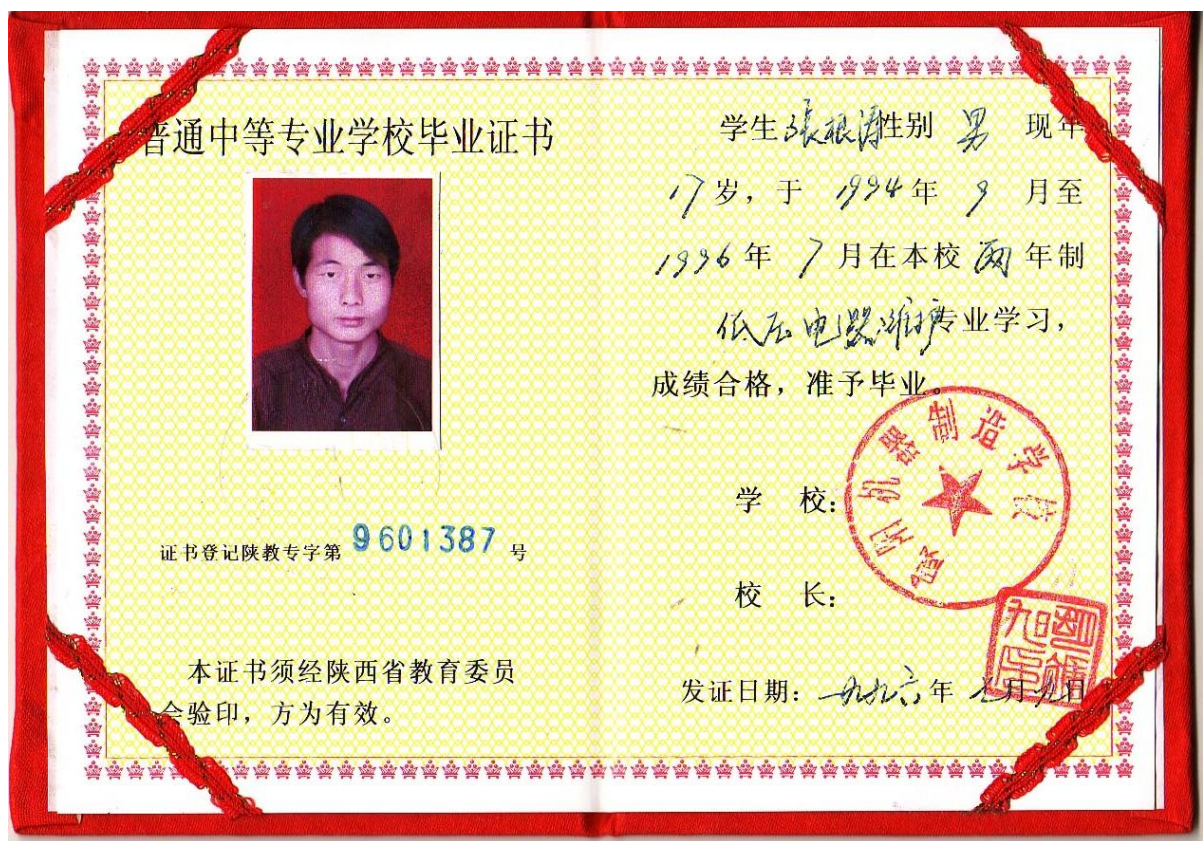 普通中等专业学校毕业证书
证书登记陕教专字第 9601387 号
本证书须经陕西省教育委员
会验印，方为有效。
学生張根涛性别 男 现年
17岁，于 1994年 9 月至
1996年 7月在本校 两 年制
低压电器维护专业学习，
成绩合格，准予毕业。
学 校：
咸阳机器制造学校
校 长：
发证日期：一九九六年 七月 九日